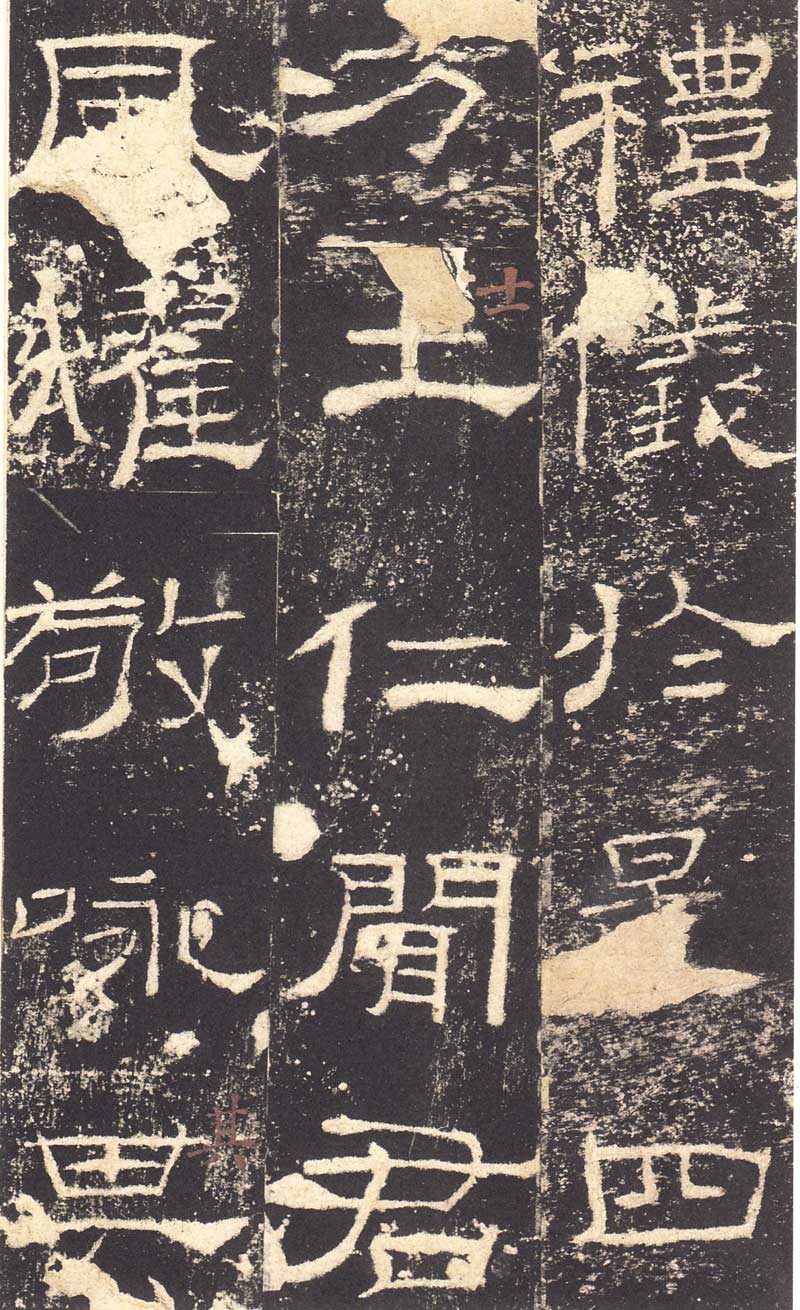 禮儀於是四
方士仁聞君
士
風燿敬咏其
其